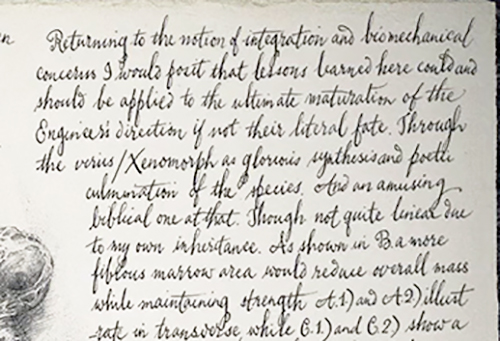 en
Returning to the notion of integration and biomechanical
concerns I would posit that lessons learned here could and
should be applied to the ultimate maturation of the
Engineer's direction if not their literal fate. Through
the verius/Xenomorph as glorious synthesis and poetic
culmination of the species. And an amusing
biblical one at that. Though not quite linear due
to my own inheritance. As shown in B. a more
fibrous marrow area would reduce overall mass
while maintaining strength A.1) and A.2) illust
-rate in transverse, while C.1) and C.2) show a